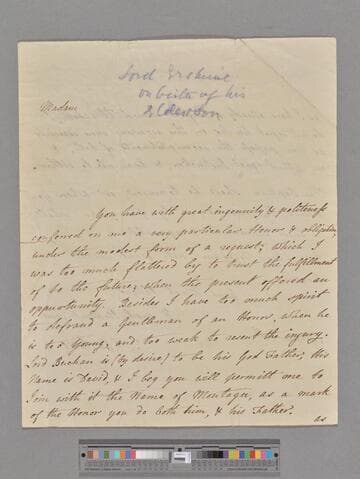 Lord Erskine
on birth of his
Eldest Son
Madam
You have with great ingenuity & politeness
conferred on me a very particular Honor & obligation,
under the modest form of a request; which I
was too much flattered by to trust the fulfillment
of to the future, when the present offered an
oppurtunity. Besides I have too much spirit
to defraud a Gentleman of an Honor, when he
is too young, and too weak to resent the injury.
Lord Buchan is (by desire) to be his God Father, His
Name is David, & I beg you will permitt me to
Join with it the Name of Montagu, as a mark
of the Honor you do both him, & his Father.
as